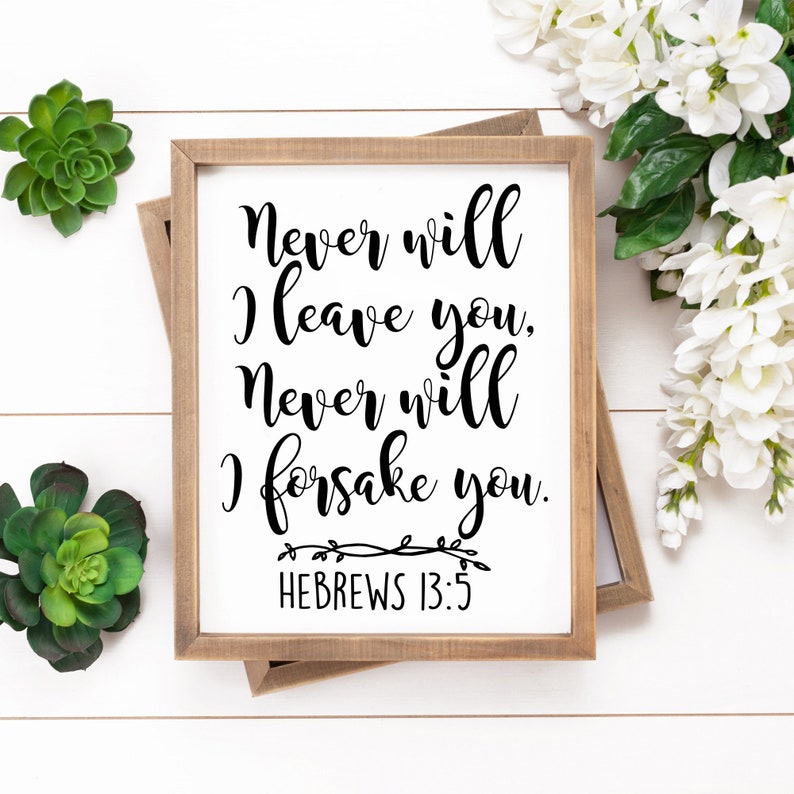 Never will
I leave you,
Never will
I forsake you.
HEBREWS 13:5